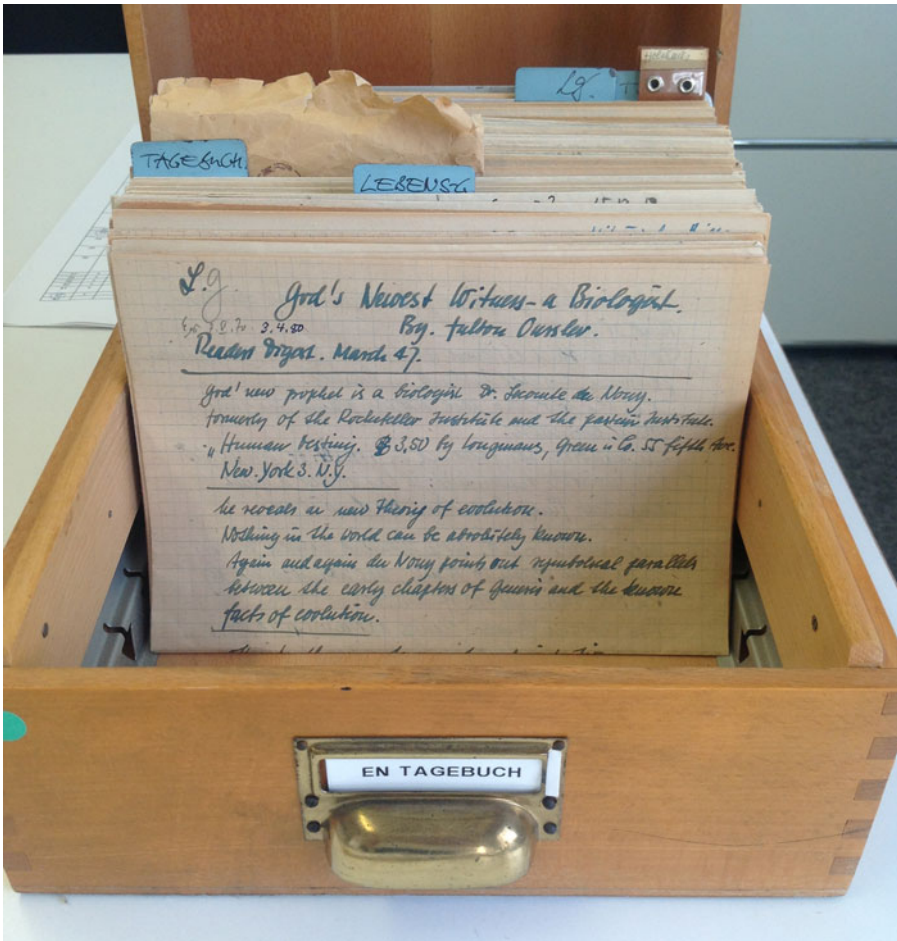 Lg.
TAGEBUCH.
LEBENSG
L.g.
God's Newest Witness - a Biologist.
3.4.80
By. Fulton Oursler.
Readers Digest. March 47.
God' new prophet is a biologist Dr. Lecomte du Nouy.
formerly of the Rockefeller Institute and the pasteur Institute.
„Human Destiny. $ 3,50 by Longmans, Green & Co. 55 fifth Ave.
New. York 3. N.y.
he reveals a new Theory of evolution.
Nothing in the world can be absolutely known.
Again and again du Nouy points out symbolical parallels
between the early chapters of Genesis and the known
facts of evolution.
EN TAGEBUCH